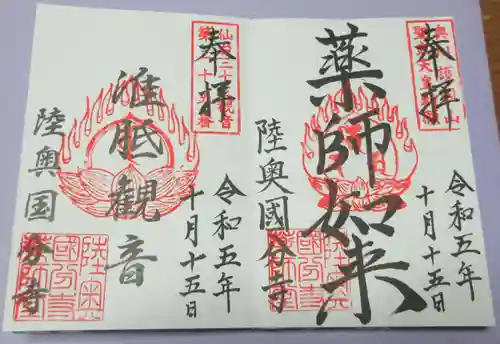 奉拝
薬師如来
陸奥國分寺
令和五年
十月十五日
陸奥
國分寺
奉拝
准胝観音
陸奥国分寺
令和五年
十月十五日
陸奥
國分寺